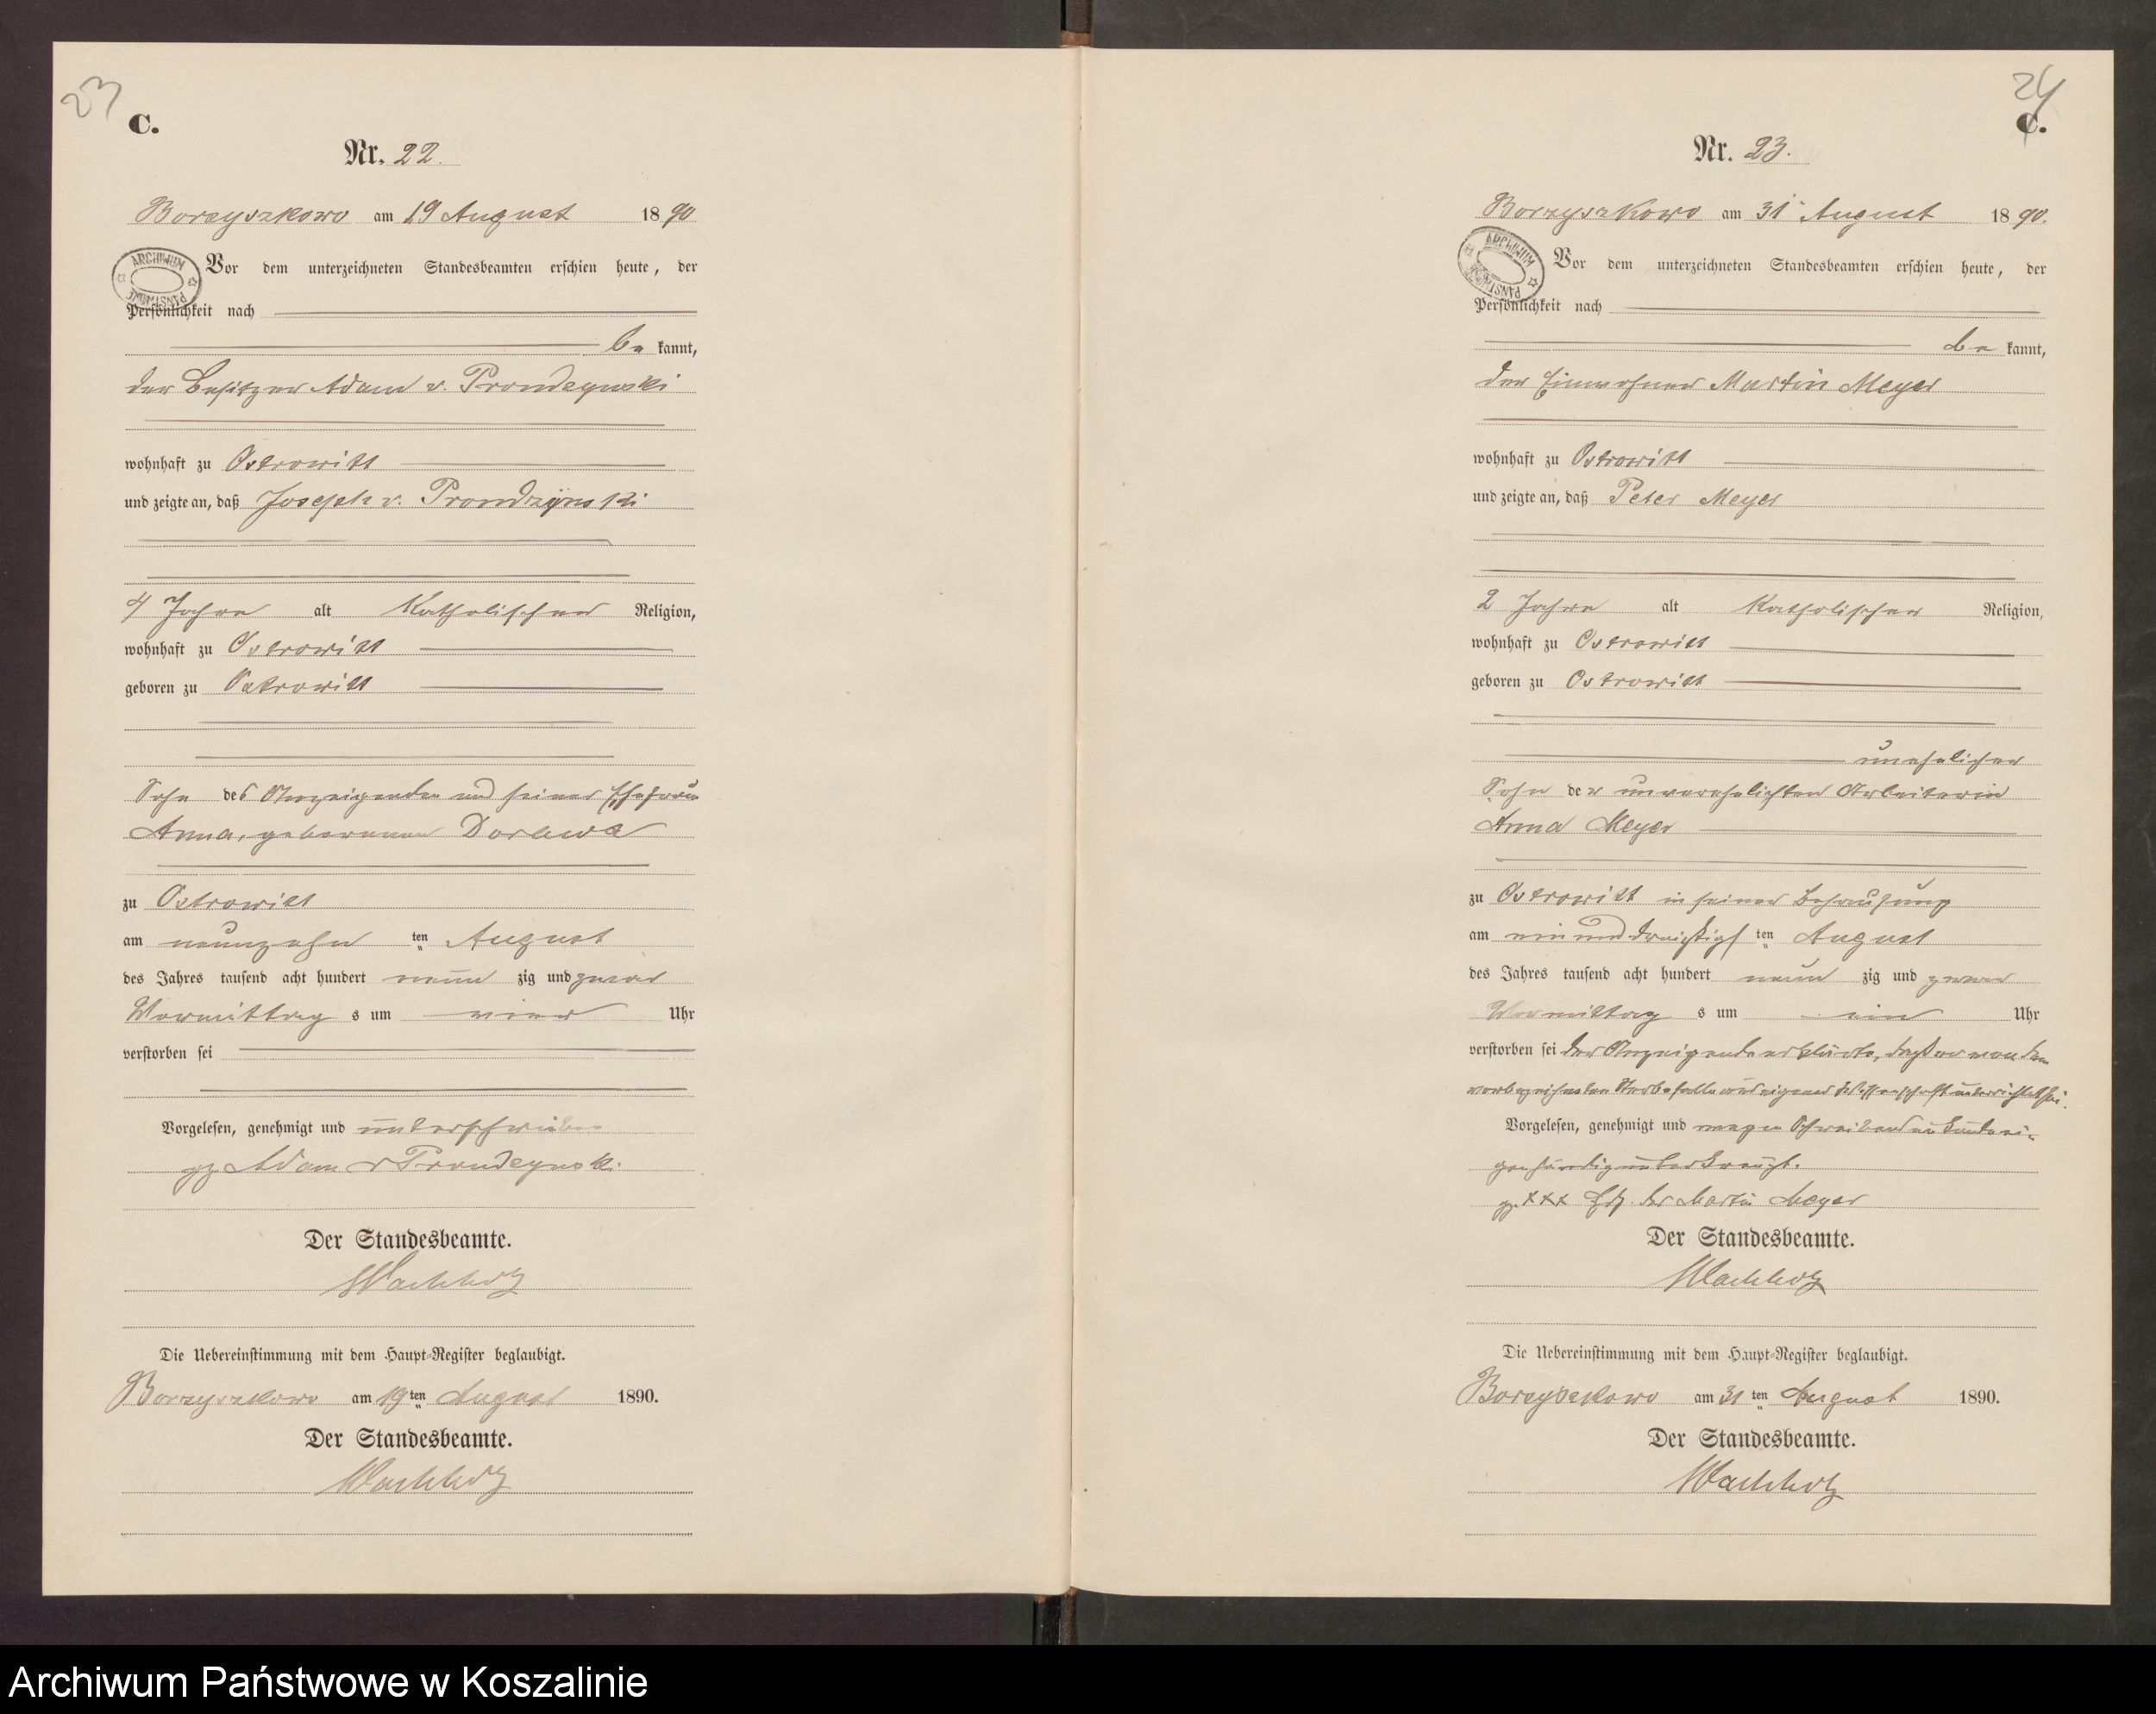 23
C.
Nr. 22.
Borzyszkowo am 19 August 1890
ARCHIWUM PAŃSTWOWE
Vor dem unterzeichneten Standesbeamten erschien heute, der
Persönlichkeit nach
be kannt,
der Besitzer Adam v. Prondzynski
wohnhaft zu Ostrowitt
und zeigte an, daß Joseph v. Prondzynski
4 Jahre alt Katholischer Religion,
wohnhaft zu Ostrowitt
geboren zu Ostrowitt
Sohn des Anzeigenden und seiner Ehefrau
Anna, geborenen Dorawa
zu Ostrowitt
am neunzehn ten August
des Jahres tausend acht hundert neun zig und zwar
Vormittag s um vier Uhr
verstorben sei
Vorgelesen, genehmigt und unterschrieben
gz Adam v Prondzynski.
Der Standesbeamte.
Wachholz
Die Uebereinstimmung mit dem Haupt-Register beglaubigt.
Borzyszkowo am 19 ten August 1890.
Der Standesbeamte.
Wachholz
24
C.
Nr. 23.
Borzyszkowo am 31 August 1890.
ARCHIWUM PAŃSTWOWE
Vor dem unterzeichneten Standesbeamten erschien heute, der
Persönlichkeit nach
be kannt,
der Einwohner Martin Meyer
wohnhaft zu Ostrowitt
und zeigte an, daß Peter Meyer
2 Jahre alt Katholischer Religion,
wohnhaft zu Ostrowitt
geboren zu Ostrowitt
unehelicher
Sohn der unverehelichten Arbeiterin
Anna Meyer
zu Ostrowitt in seiner Behausung
am ein und dreißigs ten August
des Jahres tausend acht hundert neun zig und zwar
Vormittag s um ein Uhr
verstorben sei der Anzeigende erklärte, daß er von dem
vorbezeichneten Sterbefalle aus eigener Wissenschaft unterrichtet sei.
Vorgelesen, genehmigt und wegen Schreibensunkunde ei-
genhändig unterkreuzt.
gz. XXX Hdz. des Martin Meyer
Der Standesbeamte.
Wachholz
Die Uebereinstimmung mit dem Haupt-Register beglaubigt.
Borzyszkowo am 31 ten August 1890.
Der Standesbeamte.
Wachholz
Archiwum Państwowe w Koszalinie